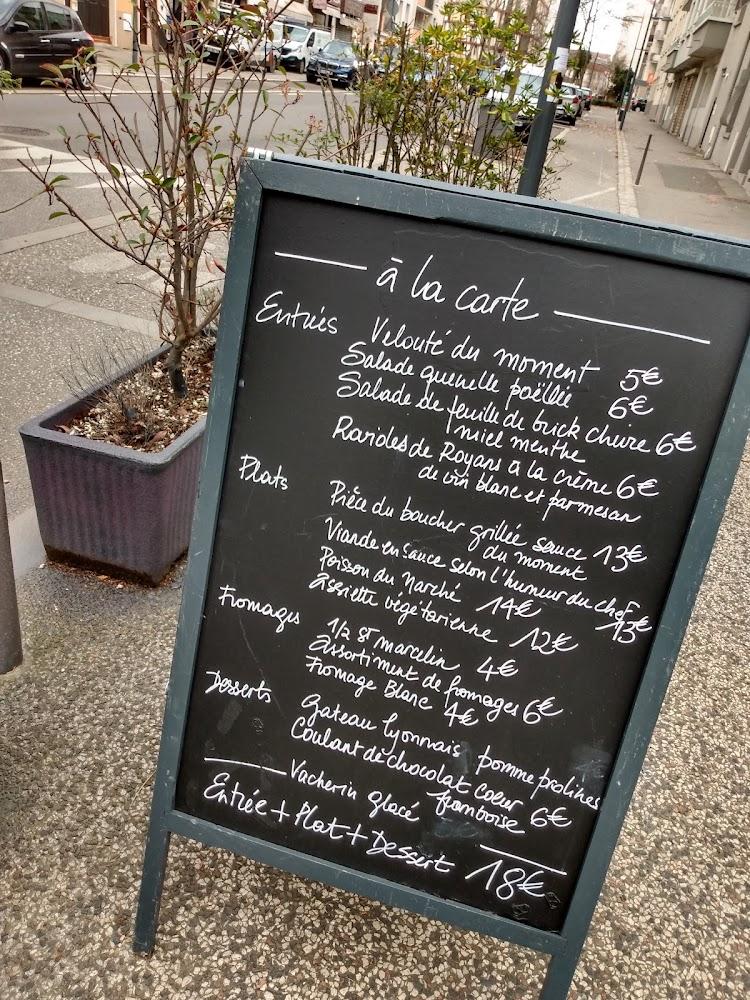 à la carte
Entrées Velouté du moment 5€
Salade quenelle poëllée 6€
Salade de feuille de brick chèvre 6€
miel menthe
Ravioles de Royans à la crème 6€
de vin blanc et parmesan
Plats Pièce du boucher grillée sauce 13€
du moment
Viande en sauce selon l'humeur du chef 13€
Poisson du Marché 14€
Assiette végétarienne 12€
Fromages 1/2 St marcelin 4€
Assortiment de fromages 6€
Fromage Blanc 4€
Desserts Gateau lyonnais pomme pralines
Coulant de chocolat coeur 6€
framboise
Vacherin glacé
Entrée + Plat + Dessert 18€